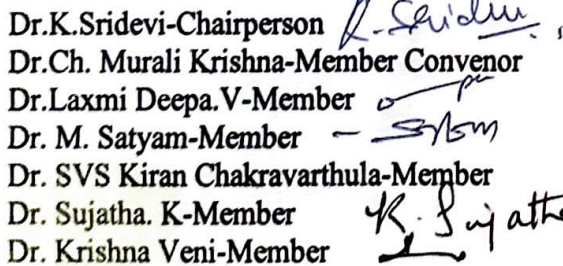 Dr.K.Sridevi-Chairperson K. Sridevi
Dr.Ch. Murali Krishna-Member Convenor
Dr.Laxmi Deepa.V-Member
Dr. M. Satyam-Member
Dr. SVS Kiran Chakravarthula-Member
Dr. Sujatha. K-Member K. Sujatha
Dr. Krishna Veni-Member